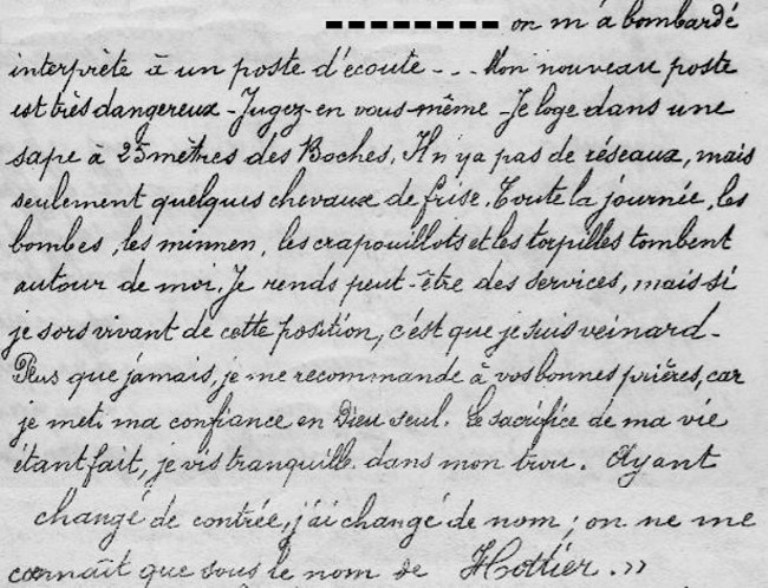 on m'a bombardé
interprète à un poste d'écoute - . . Mon nouveau poste
est très dangereux - Jugez-en vous-même - Je loge dans une
sape à 25 mètres des Boches. Il n'y a pas de réseaux, mais
seulement quelques chevaux de frise. Toute la journée, les
bombes, les minnen, les crapouillots et les torpilles tombent
autour de moi. Je rends peut-être des services, mais si
je sors vivant de cette position, c'est que je suis veinard -
Plus que jamais, je me recommande à vos bonnes prières, car
je mets ma confiance en Dieu seul. Le sacrifice de ma vie
étant fait, je vis tranquille dans mon trou. Ayant
changé de contrée, j'ai changé de nom ; on ne me
connaît que sous le nom de